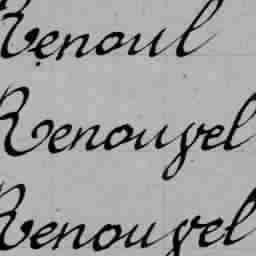 Renoul
Renouvel
Renouvel